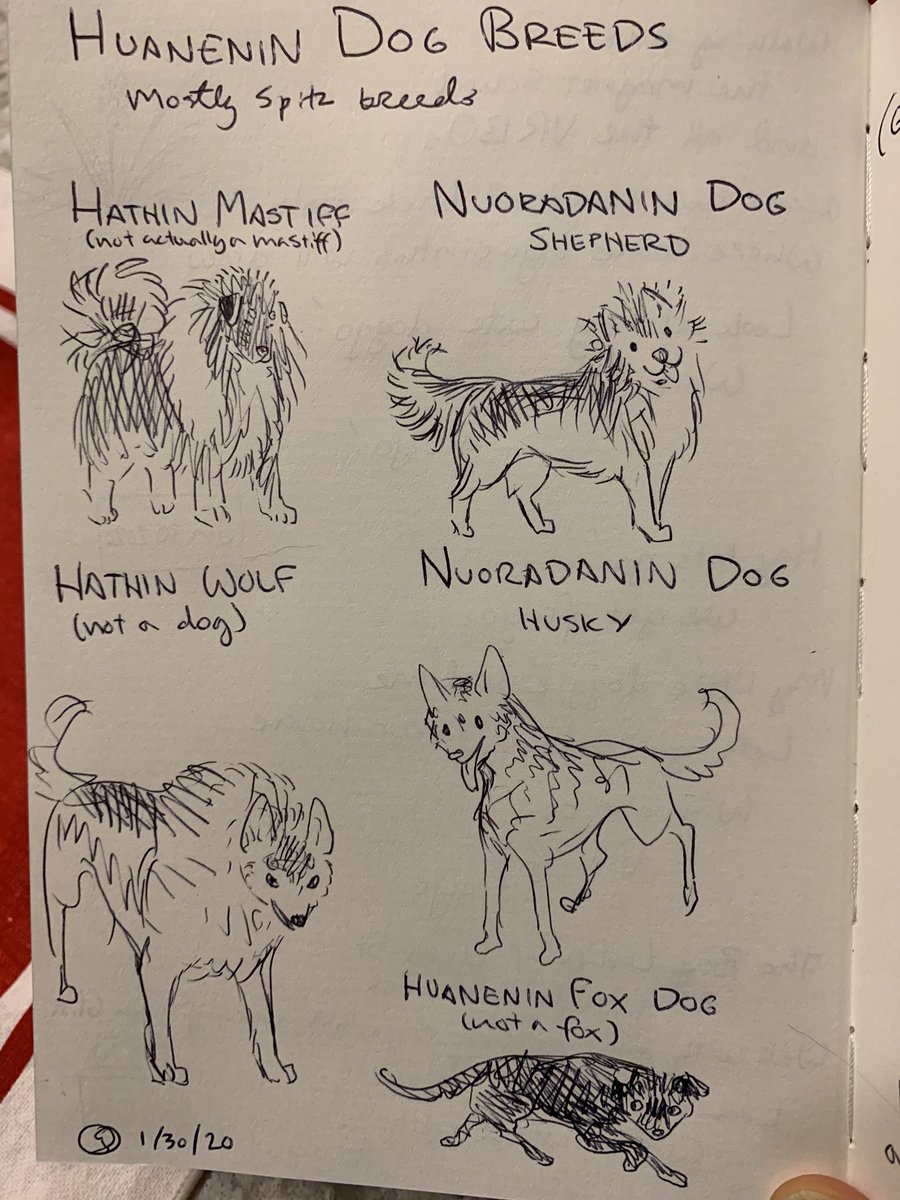 HUANENIN DOG BREEDS
Mostly Spitz breeds
HATHIN MASTIFF
(not actually a mastiff)
NUORADANIN DOG
SHEPHERD
HATHIN WOLF
(not a dog)
NUORADANIN DOG
HUSKY
HUANENIN FOX DOG
(not a fox)
1/30/20